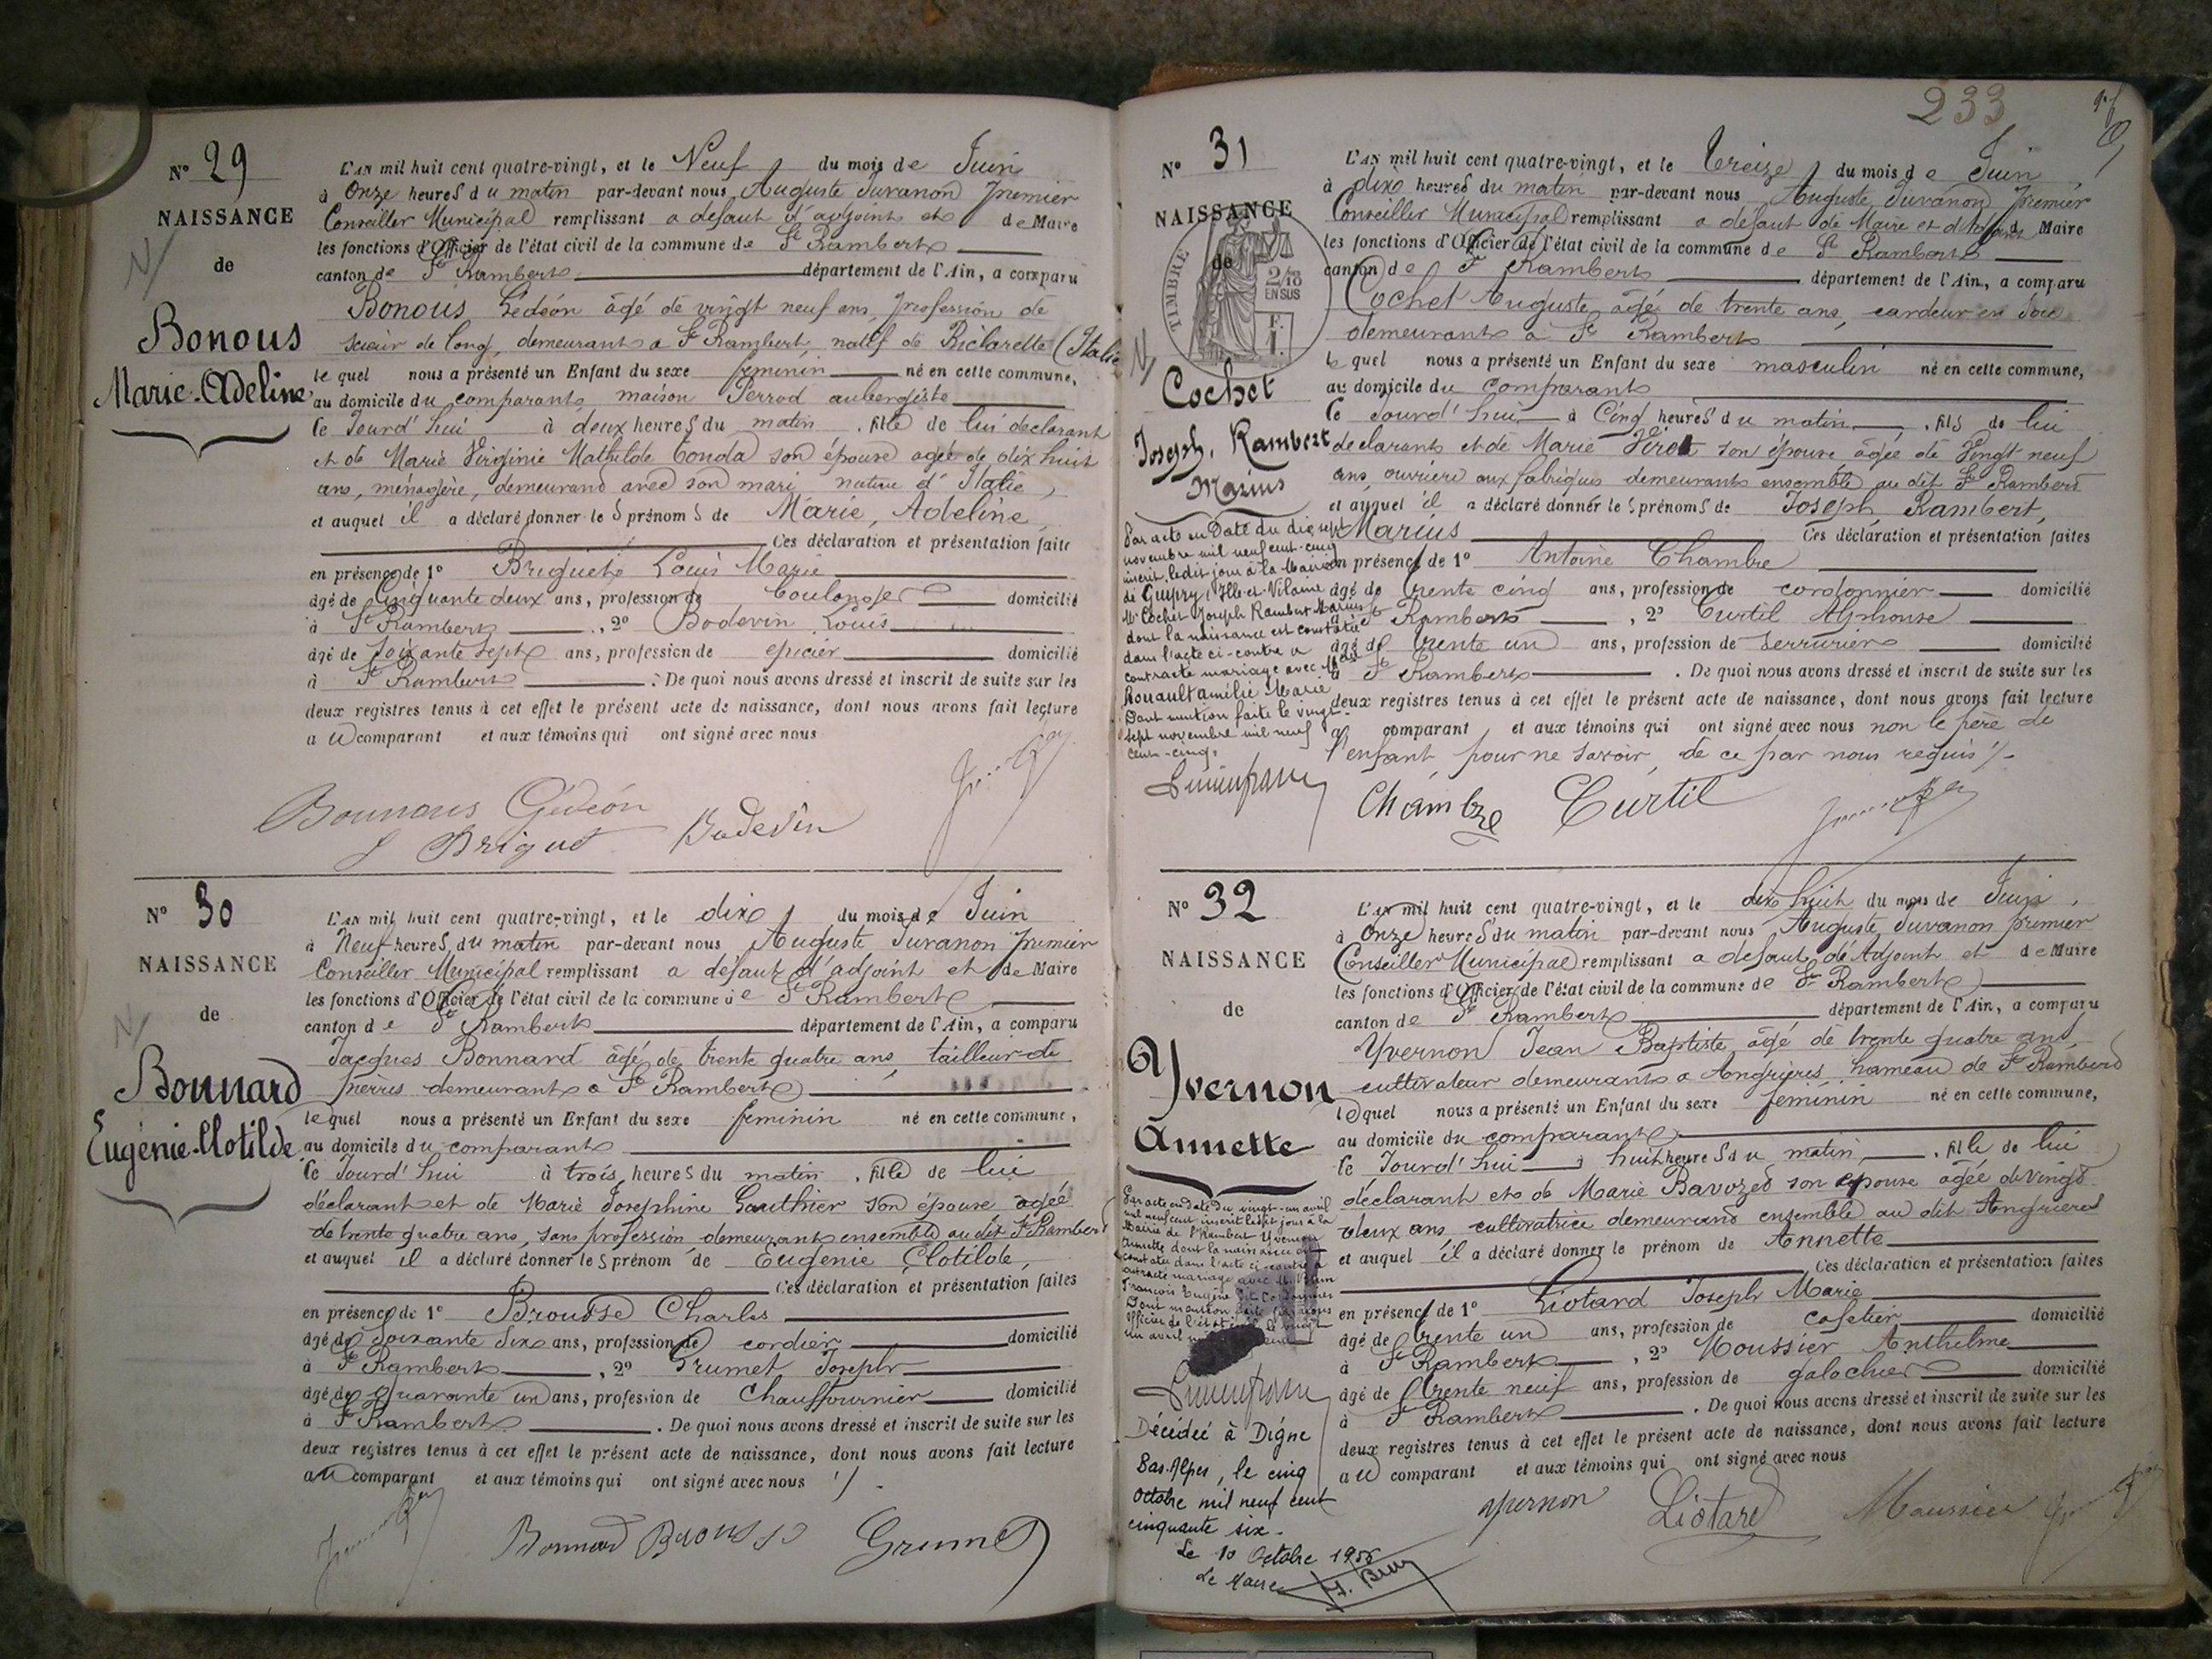 N° 29
NAISSANCE
de
Bonous
Marie-Adeline
L'AN mil huit cent quatre-vingt, et le Neuf du mois de Juin
à Onze heures du matin par-devant nous Auguste Juvanon premier
Conseiller Municipal remplissant a défaut d'adjoint et de Maire
les fonctions d'Officier de l'état civil de la commune de St Rambert
canton de St Rambert département de l'Ain, a comparu
Bonous Gédéon âgé de vingt neuf ans, profession de
scieur de long, demeurant a St Rambert, natif de Riclarette (Italie
lequel nous a présenté un Enfant du sexe feminin né en cette commune,
au domicile du comparant, maison Perrod aubergiste
ce Jourd'hui à deux heures du matin, fille de lui déclarant
et de Marie Virginie Mathilde Conda son épouse agée de dix huit
ans, ménagère, demeurand avec son mari native d'Italie,
et auquel il a déclaré donner les prénoms de Marie, Adeline,
Ces déclaration et présentation faite
en présence de 1° Briguet Louis Marie
âgé de Cinquante deux ans, profession de boulanger domicilié
à St Rambert, 2° Bodevin Louis
âgé de soixante sept ans, profession de epicier domicilié
à St Rambert. De quoi nous avons dressé et inscrit de suite sur les
deux registres tenus à cet effet le présent acte de naissance, dont nous avons fait lecture
au comparant et aux témoins qui ont signé avec nous
Bounous Gédéon
L Briguet Badevin
N° 30
NAISSANCE
de
Bonnard
Eugénie-Clotilde
L'AN mil huit cent quatre-vingt, et le dix du mois de Juin
à Neuf heures du matin par-devant nous Auguste Juvanon premier
Conseiller Municipal remplissant a défaut d'adjoint et de Maire
les fonctions d'Officier de l'état civil de la commune de St Rambert
canton de St Rambert département de l'Ain, a comparu
Jacques Bonnard âgé de trente quatre ans, tailleur de
pierres demeurant a St Rambert
lequel nous a présenté un Enfant du sexe feminin né en cette commune,
au domicile du comparant
ce Jourd'hui à trois heures du matin, fille de lui
déclarant et de Marie Josephine Gauthier son épouse agée
de trente quatre ans, sans profession demeurant ensemble au dit St Rambert
et auquel il a déclaré donner les prénom de Eugénie Clotilde,
Ces déclaration et présentation faites
en présence de 1° Brousse Charles
âgé de Soixante dix ans, profession de cordier domicilié
à St Rambert, 2° Grumet Joseph
âgé de quarante un ans, profession de Chauffournier domicilié
à St Rambert. De quoi nous avons dressé et inscrit de suite sur les
deux registres tenus à cet effet le présent acte de naissance, dont nous avons fait lecture
au comparant et aux témoins qui ont signé avec nous
Bonnard Brousse Grumet
233
N° 31
NAISSANCE
de
TIMBRE
2/10
EN SUS
Cochet
Joseph, Rambert
Marius
L'AN mil huit cent quatre-vingt, et le treize du mois de Juin
à dix heures du matin par-devant nous Auguste Juvanon premier
Conseiller Municipal remplissant a défaut de Maire et d'adjoint Maire
les fonctions d'Officier de l'état civil de la commune de St Rambert
canton de St Rambert département de l'Ain, a comparu
Cochet Auguste, âgé de trente ans, cardeur en soie
demeurant à St Rambert
lequel nous a présenté un Enfant du sexe masculin né en cette commune,
au domicile du comparant
ce Jourd'hui à Cinq heures du matin, fils de lui
declarant et de Marie Virot son épouse âgée de Vingt neuf
ans, ouvrière aux fabriques demeurants ensemble au dit St Rambert
et auquel il a déclaré donner les prénoms de Joseph, Rambert,
Marius Ces déclaration et présentation faites
en présence de 1° Antoine Chambre
âgé de trente cinq ans, profession de cordonnier domicilié
à St Rambert, 2° Curtil Alphonse
âgé de trente un ans, profession de serrurier domicilié
à St Rambert. De quoi nous avons dressé et inscrit de suite sur les
deux registres tenus à cet effet le présent acte de naissance, dont nous avons fait lecture
au comparant et aux témoins qui ont signé avec nous non le père de
l'enfant pour ne savoir, de ce par nous requis
Par acte en Date du dix sept
novembre mil neuf cent-cinq
inscrit ledit jour à la Mairie
de Guipry (Ille-et-Vilaine
Mr Cochet Joseph Rambert Marius
dont la naissance est constatée
dans l'acte ci-contre a
contracté mariage avec Melle
Rouault Amélie Marie
Dont mention faite le vingt-
sept novembre mil neuf
cent-cinq.
Chambre Curtil
N° 32
NAISSANCE
de
Yvernon
Annette
L'AN mil huit cent quatre-vingt, et le dix huit du mois de Juin,
à Onze heures du matin par-devant nous Auguste Juvanon premier
Conseiller Municipal remplissant a défaut d'Adjoint et de Maire
les fonctions d'Officier de l'état civil de la commune de St Rambert
canton de St Rambert département de l'Ain, a comparu
Yvernon Jean Baptiste, âgé de trente quatre ans,
cultivateur demeurant a Angrieres hameau de St Rambert
lequel nous a présenté un Enfant du sexe féminin né en cette commune,
au domicile du comparant
ce Jourd'hui à huit heures du matin, fille de lui
déclarant et de Marie Bavozed son epouse âgée de vingt
deux ans cultivatrice demeurand ensemble au dit Angrieres
et auquel il a déclaré donner le prénom de Annette
Ces déclaration et présentation faites
en présence de 1° Liotard Joseph Marie
âgé de trente un ans, profession de cafetier domicilié
à St Rambert, 2° Moussier Anthelme
âgé de trente neuf ans, profession de galochier domicilié
à St Rambert. De quoi nous avons dressé et inscrit de suite sur les
deux registres tenus à cet effet le présent acte de naissance, dont nous avons fait lecture
au comparant et aux témoins qui ont signé avec nous
Par acte en date du vingt-un avril
mil neuf cent inscrit ledit jour à la
Mairie de St Rambert Yvernon
Annette dont la naissance est
constatée dans l'acte ci-contre a
contracté mariage avec M.
François Eugène
Dont mention faite par nous
Officier de l'état
un avril
Décédée à Digne
Bas-Alpes, le cinq
Octobre mil neuf cent
cinquante six.
Le 10 Octobre 1956
Le Maire
yvernon Liotard Moussier